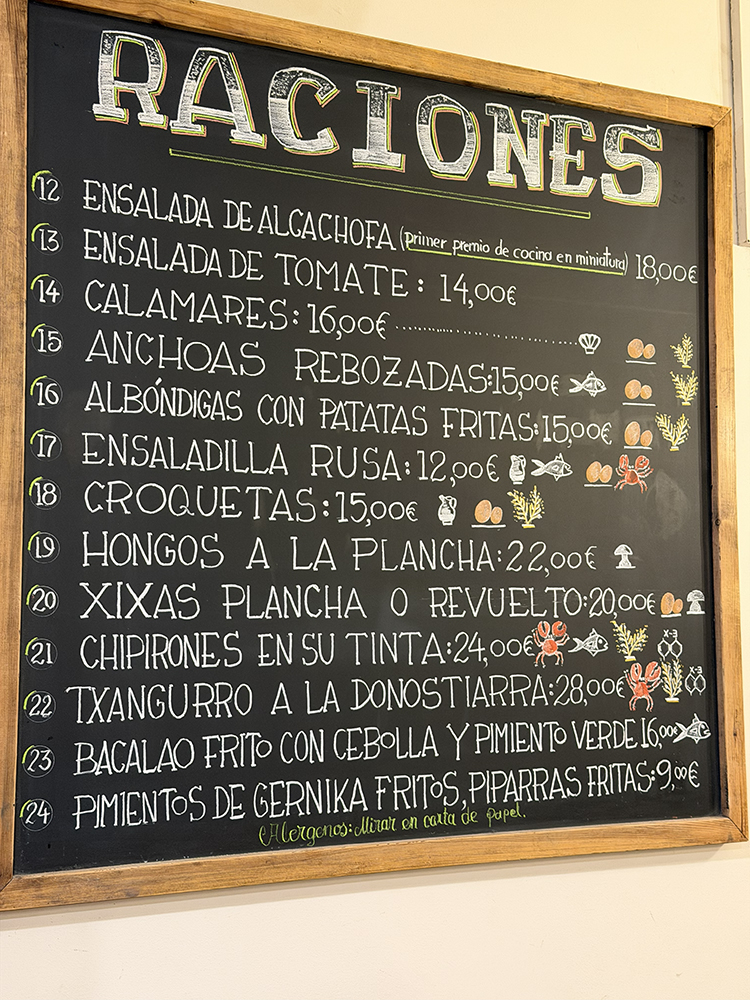 RACIONES
12 ENSALADA DE ALCACHOFA (primer premio de cocina en miniatura) 18,00€
13 ENSALADA DE TOMATE: 14,00€
14 CALAMARES: 16,00€
15 ANCHOAS REBOZADAS: 15,00€
16 ALBÓNDIGAS CON PATATAS FRITAS: 15,00€
17 ENSALADILLA RUSA: 12,00€
18 CROQUETAS: 15,00€
19 HONGOS A LA PLANCHA: 22,00€
20 XIXAS PLANCHA O REVUELTO: 20,00€
21 CHIPIRONES EN SU TINTA: 24,00€
22 TXANGURRO A LA DONOSTIARRA: 28,00€
23 BACALAO FRITO CON CEBOLLA Y PIMIENTO VERDE 16,00€
24 PIMIENTOS DE GERNIKA FRITOS, PIPARRAS FRITAS: 9,00€
Alergenos: Mirar en carta de papel.